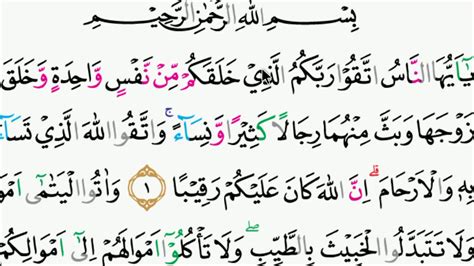 بِسْمِ اللّٰهِ الرَّحْمٰنِ الرَّحِيْمِ
يٰٓاَيُّهَا النَّاسُ اتَّقُوْا رَبَّكُمُ الَّذِيْ خَلَقَكُمْ مِّنْ نَّفْسٍ وَّاحِدَةٍ وَّخَلَقَ
زَوْجَهَا وَبَثَّ مِنْهُمَا رِجَالًا كَثِيْرًا وَّنِسَاۤءً ۚ وَاتَّقُوا اللّٰهَ الَّذِيْ تَسَاۤءَ
بِهٖ وَالْاَرْحَامَ ۗ اِنَّ اللّٰهَ كَانَ عَلَيْكُمْ رَقِيْبًا ١ وَاٰتُوا الْيَتٰمٰىٓ اَمْوَ
وَلَا تَتَبَدَّلُوا الْخَبِيْثَ بِالطَّيِّبِ ۖ وَلَا تَأْكُلُوْٓا اَمْوَالَهُمْ اِلٰٓى اَمْوَالِكُمْ